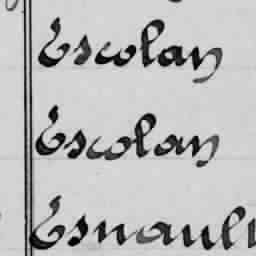 Escolan
Escolan
Esnault